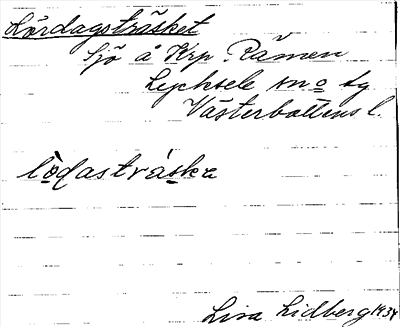 Lördagsträsket
Sjö å Krp. Råmen
Lycksele sn o tg
Västerbottens l.
lò̱dastrás̱ka
Lisa Lidberg 1934